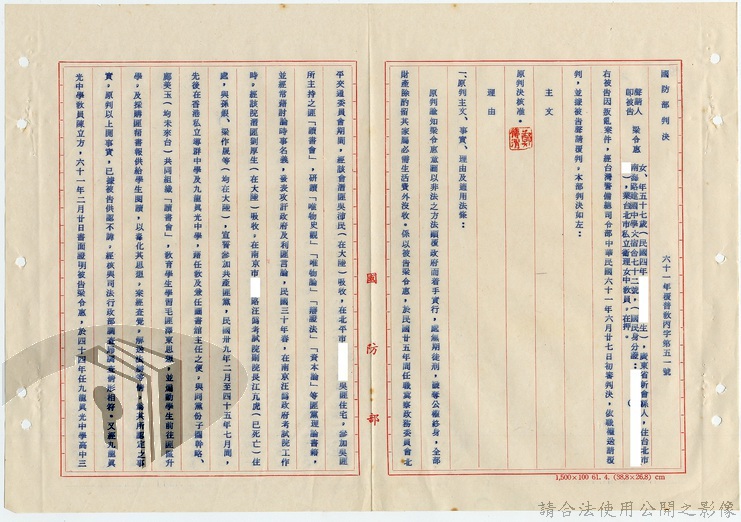 國防部判決　六十一年覆普教丙字第五一號
聲請人
即被告　梁令惠　女、年五十七歲（民國四年　生），廣東省新會縣人，住台北市
南海路建國中學大宿舍七十二號，（國民身分證：
），業台北市私立衛理女中教員，在押。
右被告因叛亂案件，經台灣警備總司令部中華民國六十一年六月廿七日初審判決，依職權送請覆
判，並據被告聲請覆判，本部判決如左：
主文
原判決核准。
理由
一、原判主文、事實、理由及適用法條：
原判諭知梁令惠意圖以非法之方法顛覆政府而着手實行，處無期徒刑，褫奪公權終身，全部
財產除酌留其家屬必需生活費外沒收。係以被告梁令惠，於民國廿五年間任職冀察政務委員會北
平交通委員會期間，經該會潛匪吳沛民（在大陸）吸收，在北平市　吳匪住宅，參加吳匪
所主持之匪「讀書會」，研讀「唯物史觀」「唯物論」「辯證法」「資本論」等匪黨理論書籍，
並經常藉討論時事名義，發表攻訐政府及利匪言論，民國三十年春，在南京汪偽政府考試院工作
時，經該院潛匪劉厚生（在大陸）吸收，在南京市　路汪偽考試院副院長江亢虎（已死亡）住
處，與孫銀、梁作展等（均在大陸），宣誓參加共產匪黨，民國卅九年二月至四十五年七月間，
先後在香港私立導群中學及九龍眞光中學，藉任教及兼任圖書館主任之便，與同黨份子關幹略、
鄺英玉（均未來台）共同組織「讀書會」，教育學生學習毛匪澤東思想，並煽動學生前往匪區升
學，及採購匪僞書報供給學生閱讀，以毒化其思想，案經查覺，解送法辦
實，原判以上開事實，已據被告供認不諱，經核與司法行政部調查局調查情形相符。又經九龍眞
光中學教員陳立方，六十一年二月廿日書面證明被告梁令惠，於四十四年任九龍眞光中學高中三
國防部
1,500×100 61. 4. (38.8×26.8) cm
請合法使用公開之影像